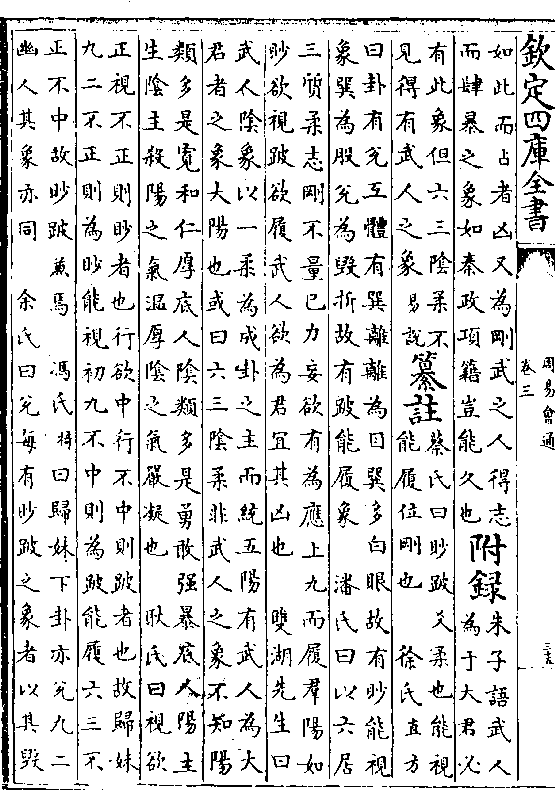 欽定四庫全書
周易會通
卷三
三五
如此而占者凶又為剛武之人得志
而肆暴之象如秦政項籍豈能久也
附録
朱子語武人
為于大君必
有此象但六三陰柔不
見得有武人之象易説
纂註
蔡氏曰眇跛爻柔也能視
能履位剛也　徐氏直方
曰卦有兊互體有巽離離為目巽多白眼故有眇能視
象巽為股兊為毀折故有跛能履象　潘氏曰以六居
三質柔志剛不量已力妄欲有為應上九而履羣陽如
眇欲視跛欲履武人欲為君宜其凶也　雙湖先生曰
武人陰象以一柔為成卦之主而統五陽有武人為大
君者之象大陽也或曰六三陰柔非武人之象不知陽
類多是寛和仁厚底人陰類多是勇敢强暴底人陽主
生陰主殺陽之氣温厚陰之氣嚴凝也　耿氏曰視欲
正視不正則眇者也行欲中行不中則跛者也故歸妹
九二不正則為眇能視初九不中則為跛能履六三不
正不中故眇跛兼焉　馮氏椅曰歸妹下卦亦兊九二
幽人其象亦同　余氏曰兊每有眇跛之象者以其毀